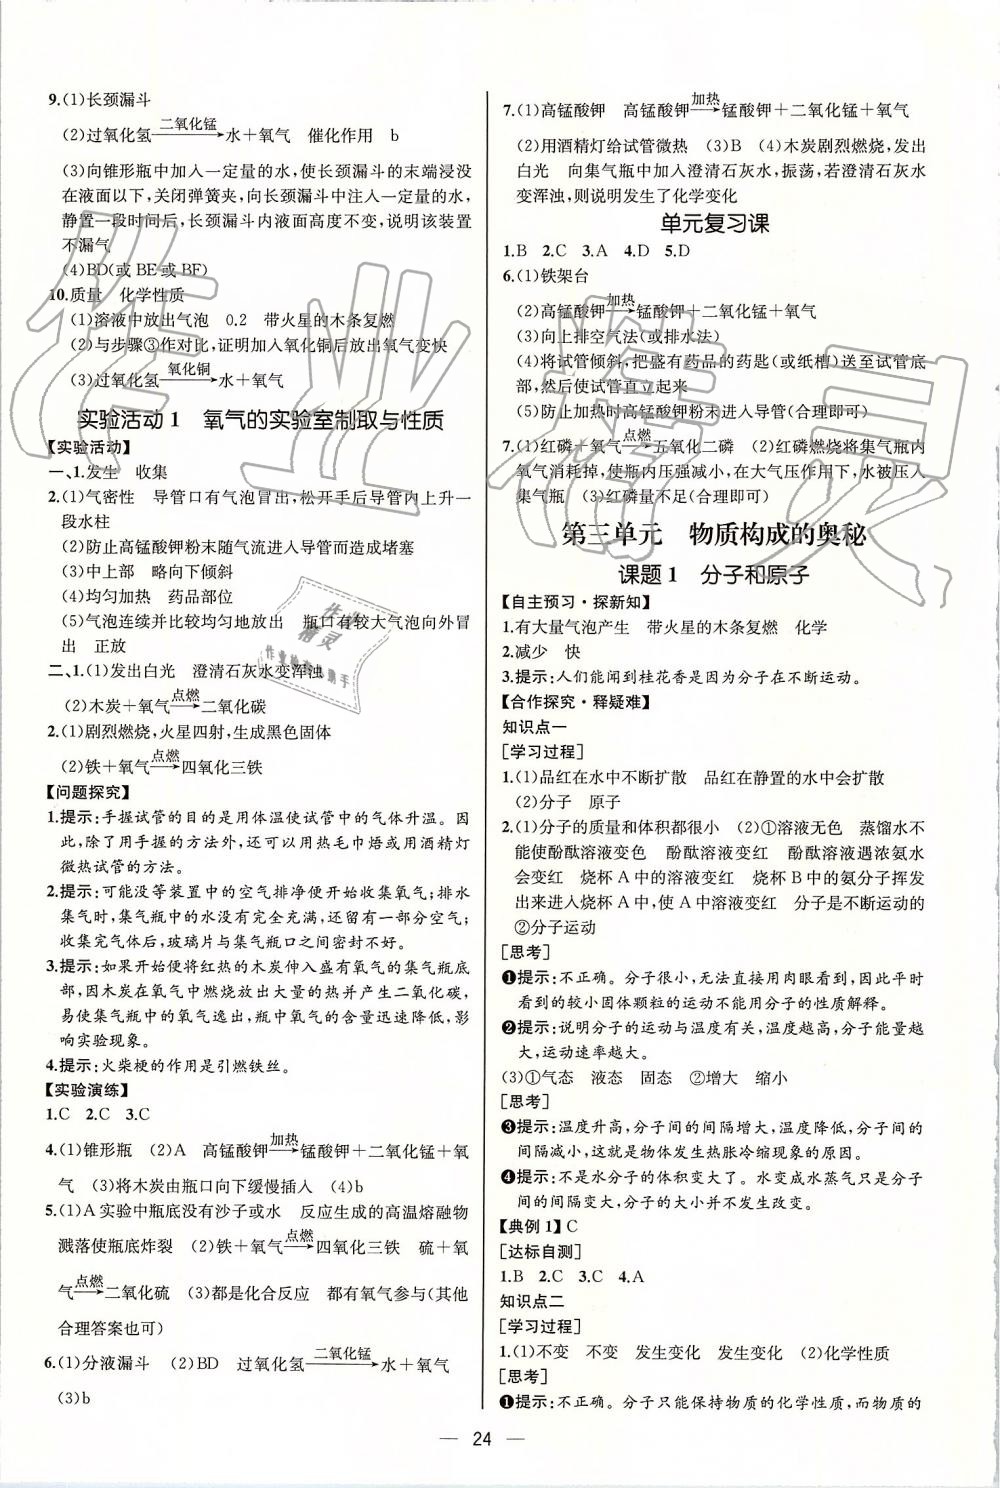 9.(1)长颈漏斗
(2)过氧化氢 二氧化锰→ 水＋氧气　催化作用　b
(3)向锥形瓶中加入一定量的水,使长颈漏斗的末端浸没
在液面以下,关闭弹簧夹,向长颈漏斗中加入一定量的水,
静置一段时间后,长颈漏斗内液面高度不变,说明该装置
不漏气
(4)BD(或 BE 或 BF)
10.质量　化学性质
(1)溶液中放出气泡　0.2　带火星的木条复燃
(2)与步骤③作对比,证明加入氧化铜后放出氧气变快
(3)过氧化氢 氧化铜→ 水＋氧气
实验活动 1　氧气的实验室制取与性质
【实验活动】
一、1.发生　收集
2.(1)气密性　导管口有气泡冒出,松开手后导管内上升一
段水柱
(2)防止高锰酸钾粉末随气流进入导管而造成堵塞
(3)中上部　略向下倾斜
(4)均匀加热　药品部位
(5)气泡连续并比较均匀地放出　瓶口有较大气泡向外冒
出　正放
二、1.(1)发出白光　澄清石灰水变浑浊
(2)木炭＋氧气 点燃→ 二氧化碳
2.(1)剧烈燃烧,火星四射,生成黑色固体
(2)铁＋氧气 点燃→ 四氧化三铁
【问题探究】
1.提示:手握试管的目的是用体温使试管中的气体升温。因
此,除了用手握的方法外,还可以用热毛巾捂或用酒精灯
微热试管的方法。
2.提示:可能没等装置中的空气排净便开始收集氧气;排水
集气时,集气瓶中的水没有完全充满,留有一部分空气;
收集完气体后,玻璃片与集气瓶口之间密封不好。
3.提示:如果开始便将红热的木炭伸入盛有氧气的集气瓶底
部,因木炭在氧气中燃烧放出大量的热并产生二氧化碳,
易使集气瓶中的氧气逸出,瓶中氧气的含量迅速降低,影
响实验现象。
4.提示:火柴梗的作用是引燃铁丝。
【实验演练】
1.C　2.C　3.C
4.(1)锥形瓶　(2)A　高锰酸钾 加热→ 锰酸钾＋二氧化锰＋氧
气　(3)将木炭由瓶口向下缓慢插入　(4)b
5.(1)A 实验中瓶底没有沙子或水　反应生成的高温熔融物
溅落使瓶底炸裂　(2)铁＋氧气 点燃→ 四氧化三铁　硫＋氧
气 点燃→ 二氧化硫　(3)都是化合反应　都有氧气参与(其他
合理答案也可)
6.(1)分液漏斗　(2)BD　过氧化氢 二氧化锰→ 水＋氧气
(3)b
7.(1)高锰酸钾　高锰酸钾 加热→ 锰酸钾＋二氧化锰＋氧气
(2)用酒精灯给试管微热　(3)B　(4)木炭剧烈燃烧,发出
白光　向集气瓶中加入澄清石灰水,振荡,若澄清石灰水
变浑浊,则说明发生了化学变化
单元复习课
1.B　2.C　3.A　4.D　5.D
6.(1)铁架台
(2)高锰酸钾 加热→ 锰酸钾＋二氧化锰＋氧气
(3)向上排空气法(或排水法)
(4)将试管倾斜,把盛有药品的药匙(或纸槽)送至试管底
部,然后使试管直立起来
(5)防止加热时高锰酸钾粉末进入导管(合理即可)
7.(1)红磷＋氧气 点燃→ 五氧化二磷　(2)红磷燃烧将集气瓶内
氧气消耗掉,使瓶内压强减小,在大气压作用下,水被压入
集气瓶　(3)红磷量不足(合理即可)
第三单元　物质构成的奥秘
课题 1　分子和原子
【自主预习·探新知】
1.有大量气泡产生　带火星的木条复燃　化学
2.减少　快
3.提示:人们能闻到桂花香是因为分子在不断运动。
【合作探究·释疑难】
知识点一
[学习过程]
1.(1)品红在水中不断扩散　品红在静置的水中会扩散
(2)分子　原子
2.(1)分子的质量和体积都很小　(2)①溶液无色　蒸馏水不
能使酚酞溶液变色　酚酞溶液变红　酚酞溶液遇浓氨水
会变红　烧杯 A 中的溶液变红　烧杯 B 中的氨分子挥发
出来进入烧杯 A 中,使 A 中溶液变红　分子是不断运动的
②分子运动
[思考]
❶提示:不正确。分子很小,无法直接用肉眼看到,因此平时
看到的较小固体颗粒的运动不能用分子的性质解释。
❷提示:说明分子的运动与温度有关,温度越高,分子能量越
大,运动速率越大。
(3)①气态　液态　固态　②增大　缩小
[思考]
❸提示:温度升高,分子间的间隔增大,温度降低,分子间的
间隔减小,这就是物体发生热胀冷缩现象的原因。
❹提示:不是水分子的体积变大了。水变成水蒸气只是分子
间的间隔变大,分子的大小并不发生改变。
【典例 1】C
[达标自测]
1.B　2.C　3.C　4.A
知识点二
[学习过程]
1.(1)不变　不变　发生变化　发生变化　(2)化学性质
[思考]
❶提示:不正确。分子只能保持物质的化学性质,而物质的
— 24 —
作业精灵